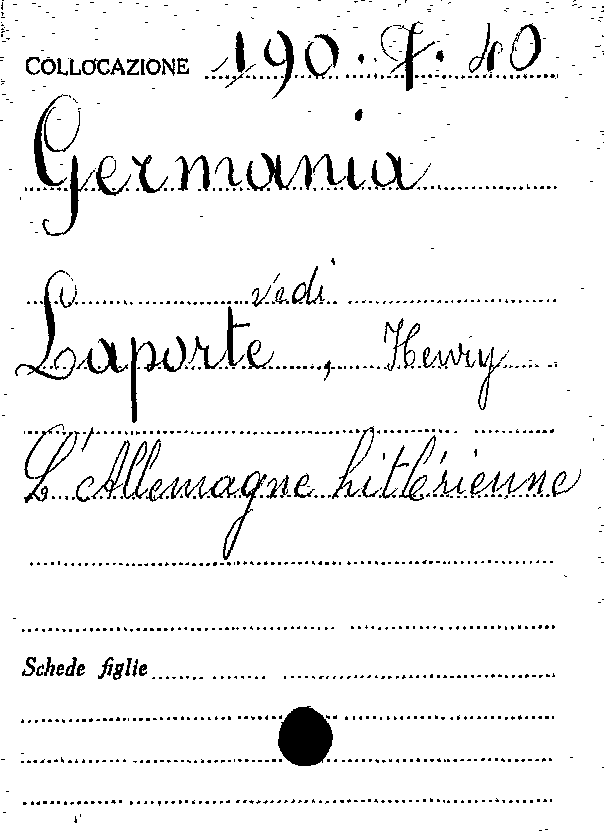 COLLOCAZIONE 190. J. 40
Germania
vedi
Laporte, Henry
L'Allemagne hitlérienne
Schede figlie